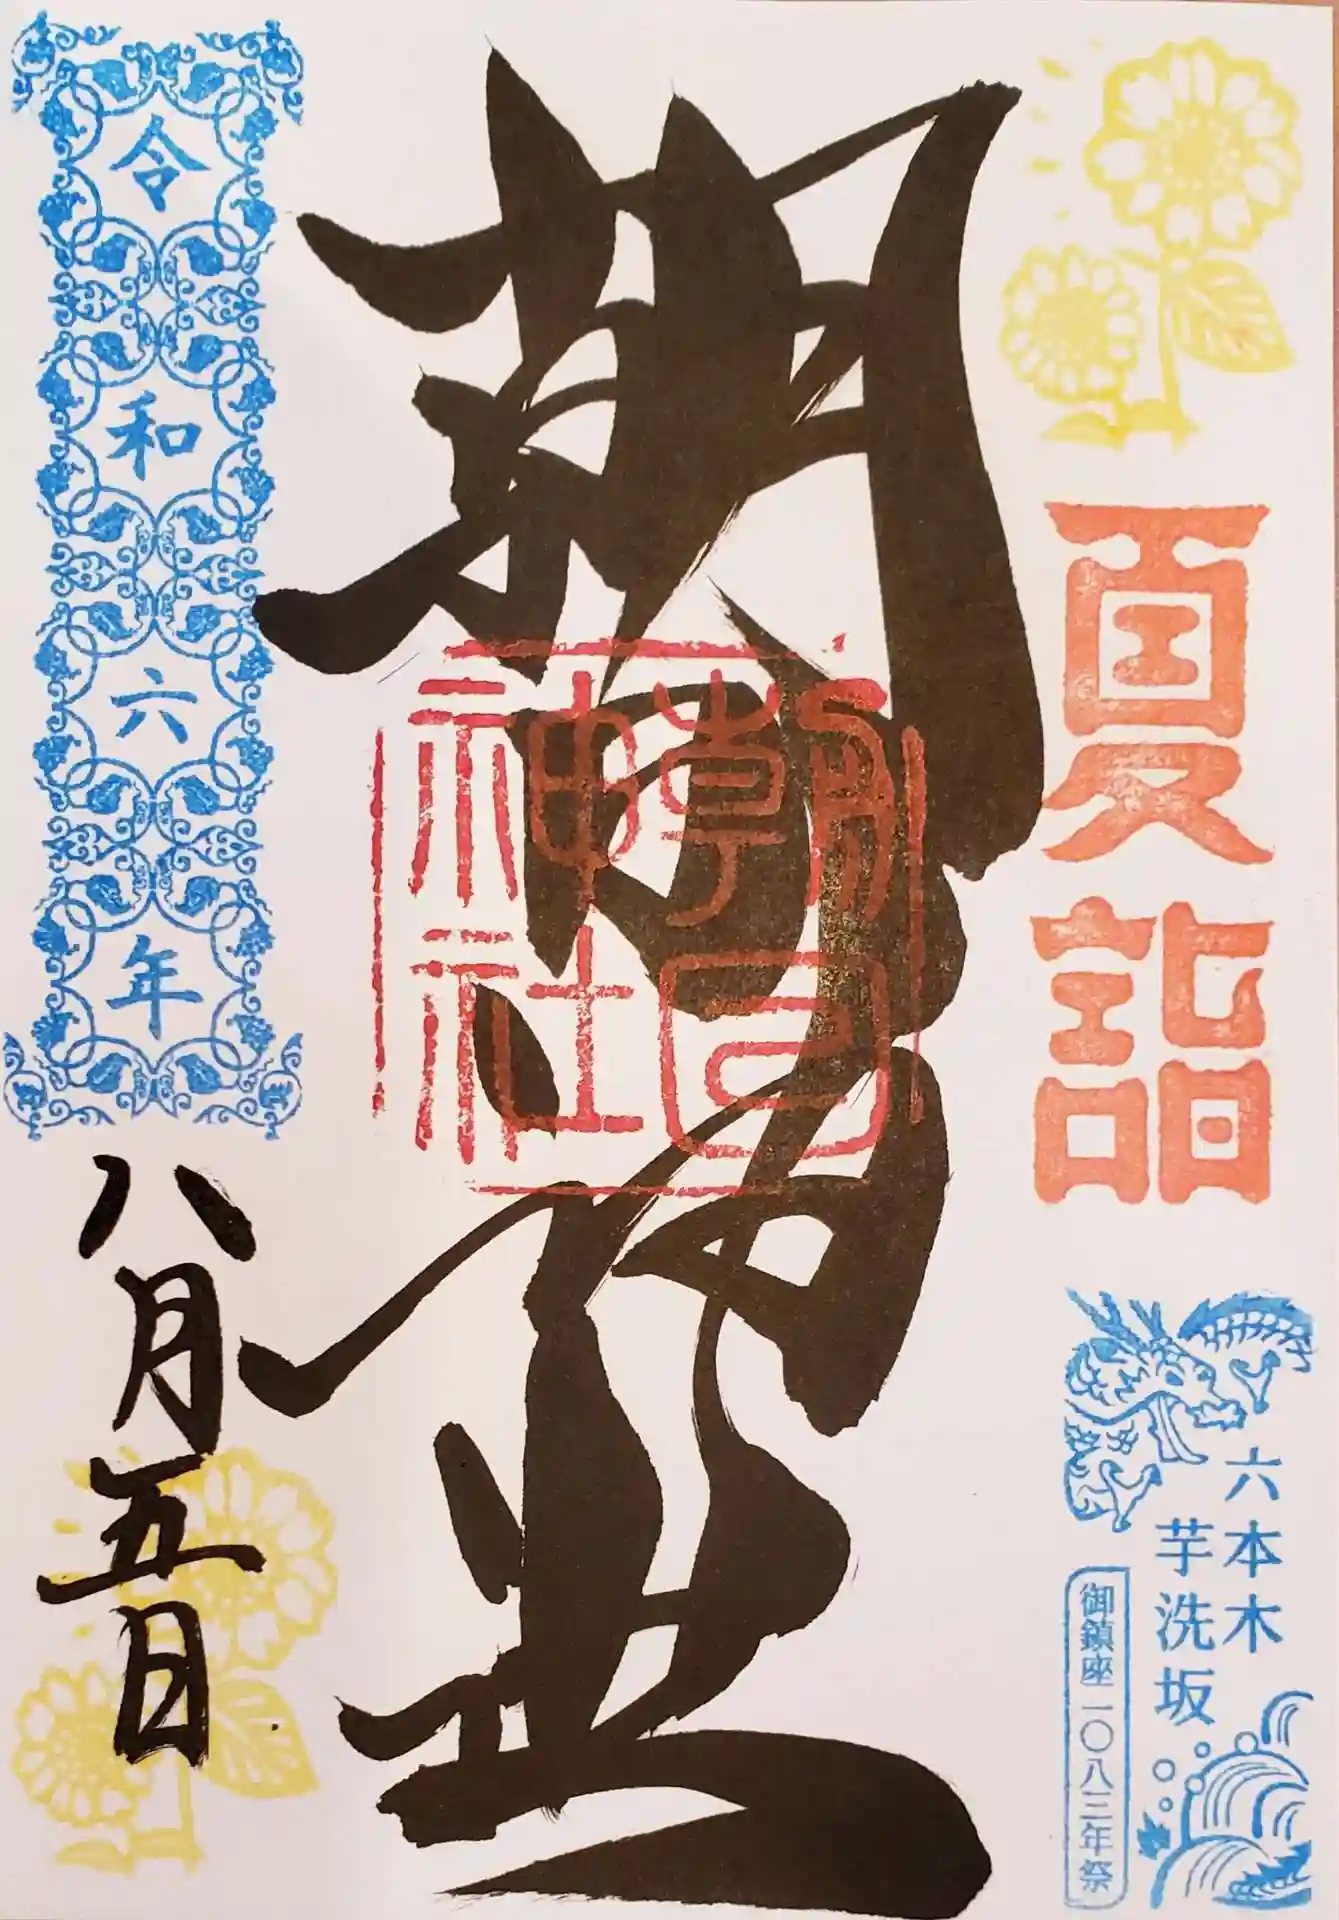 夏詣
六本木
芋洗坂
御鎮座一〇八三年祭
朝日神社
朝日
神社
令和六年
八月五日